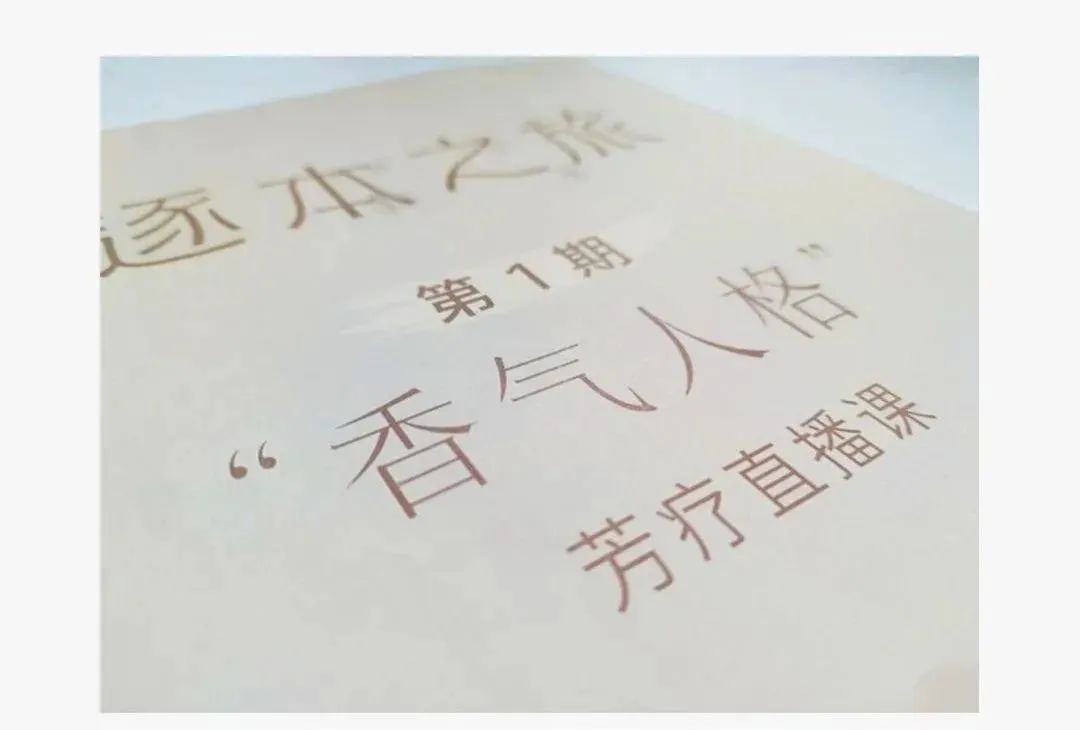 逐本之旅
第1期
“香气人格”
芳疗直播课